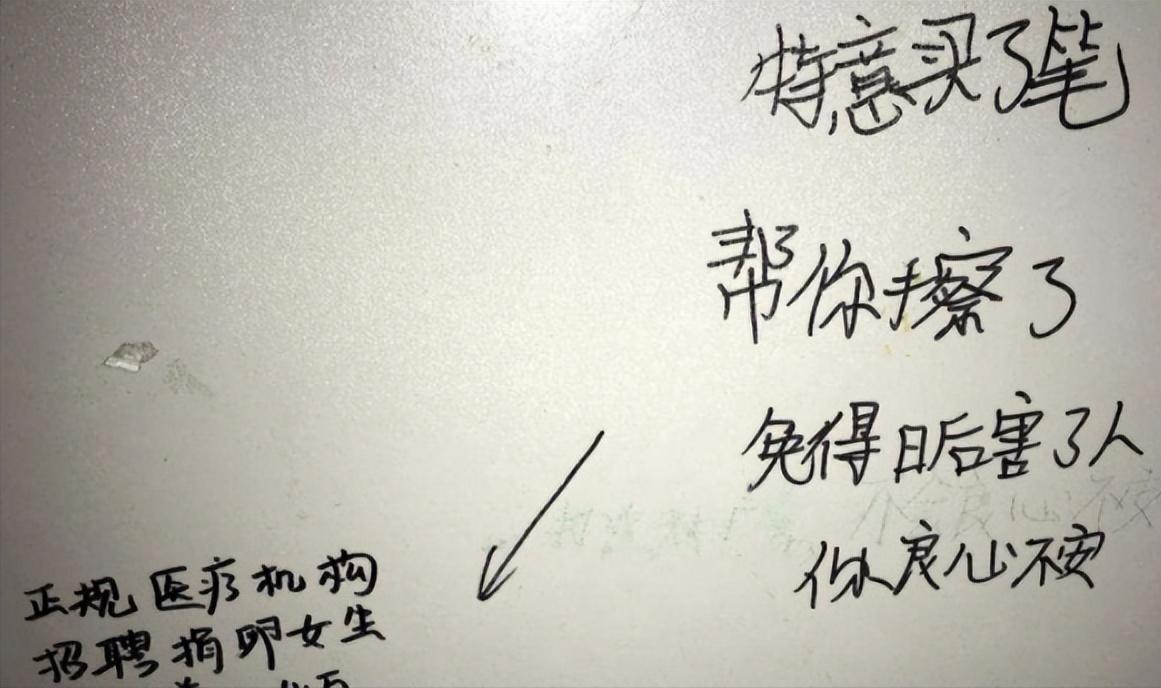 特意买了笔
帮你擦了
免得日后害了人
你良心不安
正规医疗机构
招聘捐卵女生